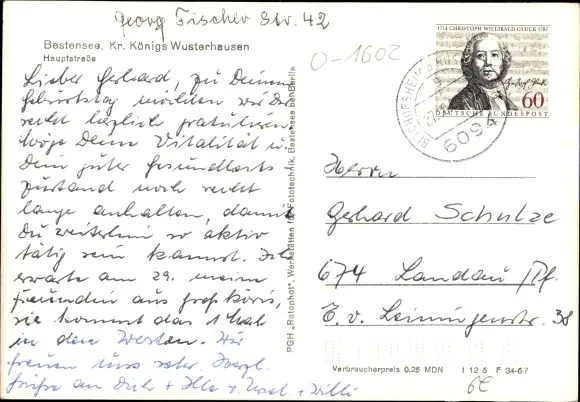 Georg Fischer Str. 42
Bestensee, Kr. Königs Wusterhausen
Hauptstraße
Lieber Gerhard, zu Deinem
Geburtstag möchten wir Dir
recht herzlich gratulieren
möge Deine Vitalität u.
Dein guter Gesundheits
zustand noch recht
lange anhalten, damit
Du weiterhin so aktiv
tätig sein kannst. Ich
erwarte am 29. meine
Freundin aus Groß Köris,
sie kommt das 1 Mal
in den Westen. Wir
freuen uns sehr. Herzl.
Grüße an Dich + Ilse v. Ursel + Willi
PGH „Rotophot", Werkstätten für Fototechnik, Bestensee bei Berlin
0-1602
1714 CHRISTOPH WILLIBALD GLUCK 1787
60
DEUTSCHE BUNDESPOST
BISCHOFSHEIM
6094
Herrn
Gerhard Schulze
674 Landau/Pf.
E. v. Leiningenstr. 38
Verbraucherpreis 0,25 MDN I 12 5 F 34-67
6E